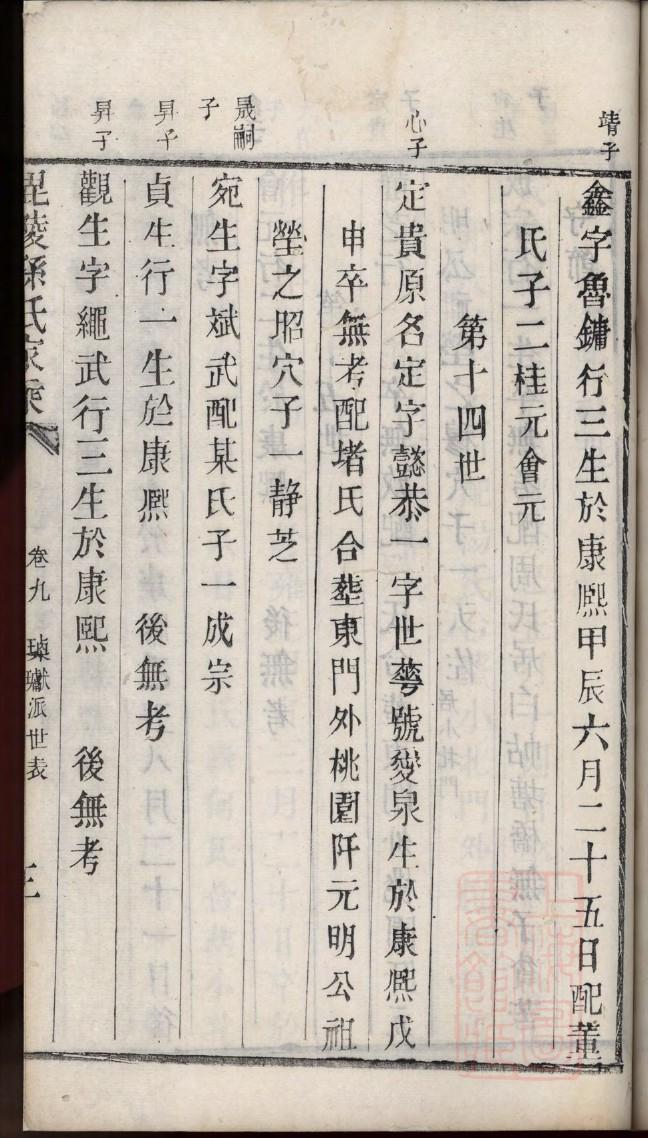 靖子
鑫字魯鏞行三生於康熙甲辰六月二十五日配董
氏子二桂元會元
第十四世
心子
定貴原名定字懿恭一字世蕚號夑泉生於康熙戊
申卒無考配堵氏合塟東門外桃園阡元明公祖
塋之昭穴子一靜芝
晟嗣子
宛生字斌武配某氏子一成宗
昇子
貞生行一生於康熙 後無考
昇子
觀生字繩武行三生於康熙 後無考
毘陵孫氏家乘
卷九 派世表 三